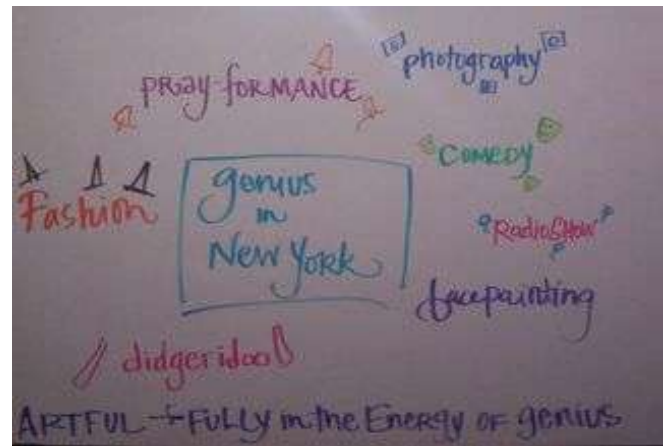 photography
PRay-foRMANCE
COMEDY
Fashion
genius
in
New York
RadioSHow
facepainting
didgeridoo
ARTFUL + FULLY in the Energy of genius